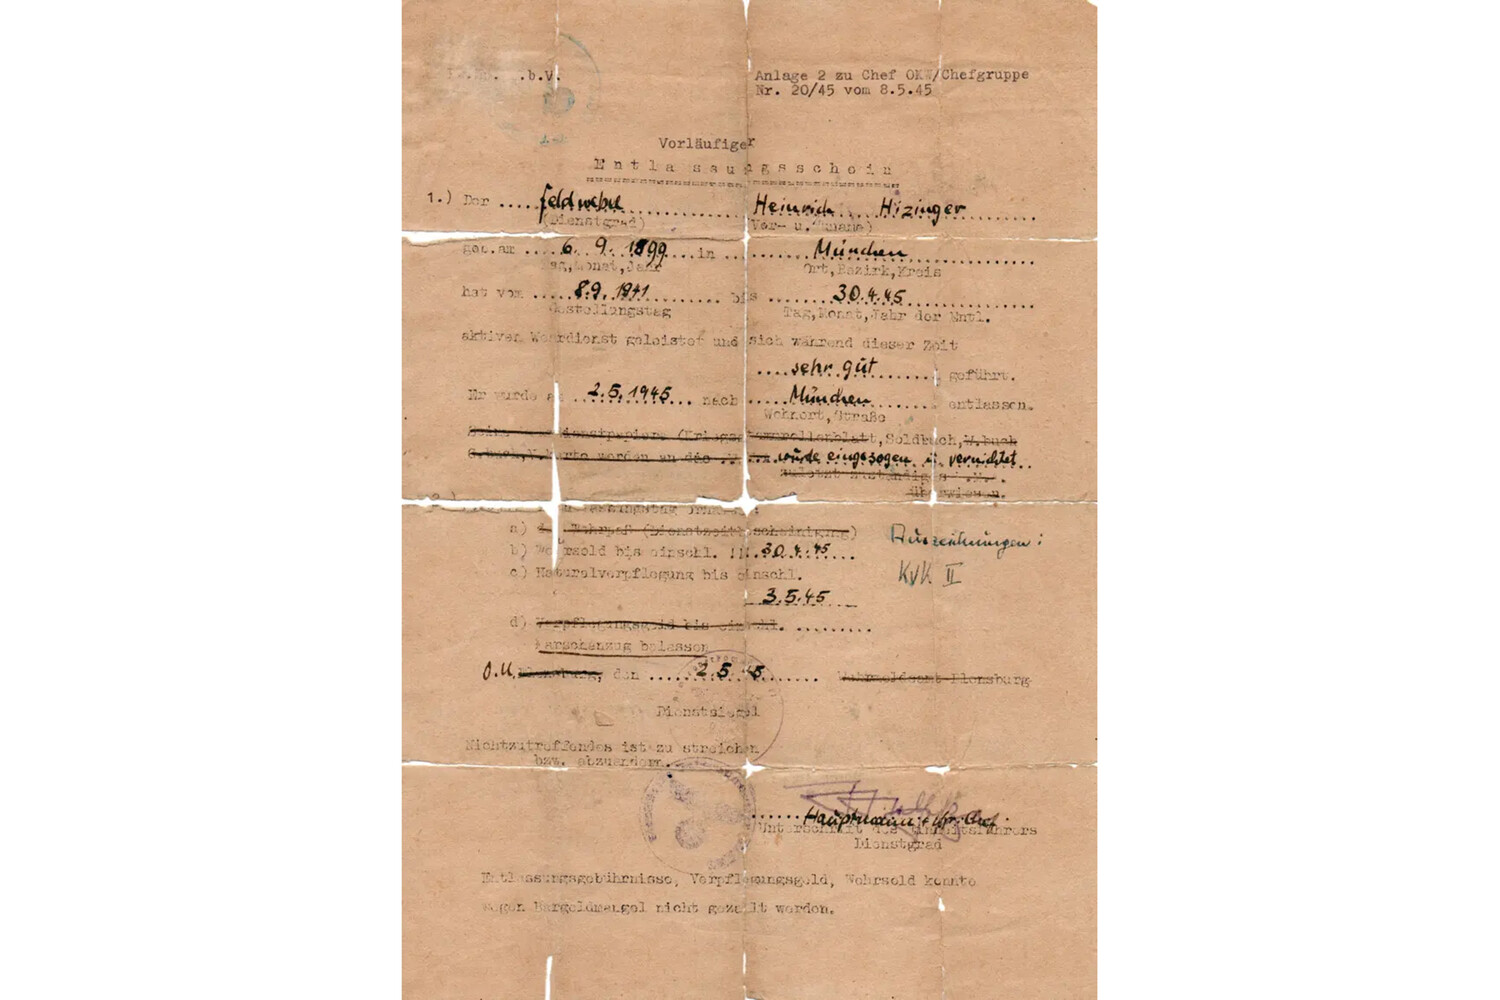 .b.V.
Anlage 2 zu Chef OKW/Chefgruppe
Nr. 20/45 vom 8.5.45
Vorläufiger
Entlassungsschein
1.) Der ....Feldwebel.... Heinrich Hizinger
(Dienstgrad) Vor- u.Zuname)
geb.am ....6. 9. 1899....in ....München....
Tag,Monat,Jahr Ort,Bezirk,Kreis
hat vom ....8.9. 1941.... bis ....30.4.45....
Gestellungstag Tag,Monat,Jahr der Entl.
aktiven Wehrdienst geleistet und sich während dieser Zeit
....sehr gut...... geführt.
Er wurde am ....2.5.1945.... nach ....München.... entlassen.
Wohnort,Straße
Dienstpapiere (Kriegsstammrollenblatt,Soldbuch,W.buch
werden an das wurde eingezogen u. vernichtet..
zuletzt zuständige
überwiesen.
a) Wehrpaß (Dienstzeitbescheinigung)
b) Wehrsold bis einschl. ...30.4.45...
c) Naturalverpflegung bis einschl.
3.5.45
d) Verpflegungsgeld bis einschl. .........
Marschanzug belassen
Auszeichnungen:
KVK II
O.U. Flensburg, den ....2.5.45...... Wehrmeldeamt Flensburg
Dienstsiegel
Nichtzutreffendes ist zu streichen
bzw. abzuändern.
Hauptmann u.
Unterschrift des Einheitsführers
Dienstgrad
Entlassungsgebührnisse, Verpflegungsgeld, Wehrsold konnte
wegen Bargeldmangel nicht gezahlt werden.